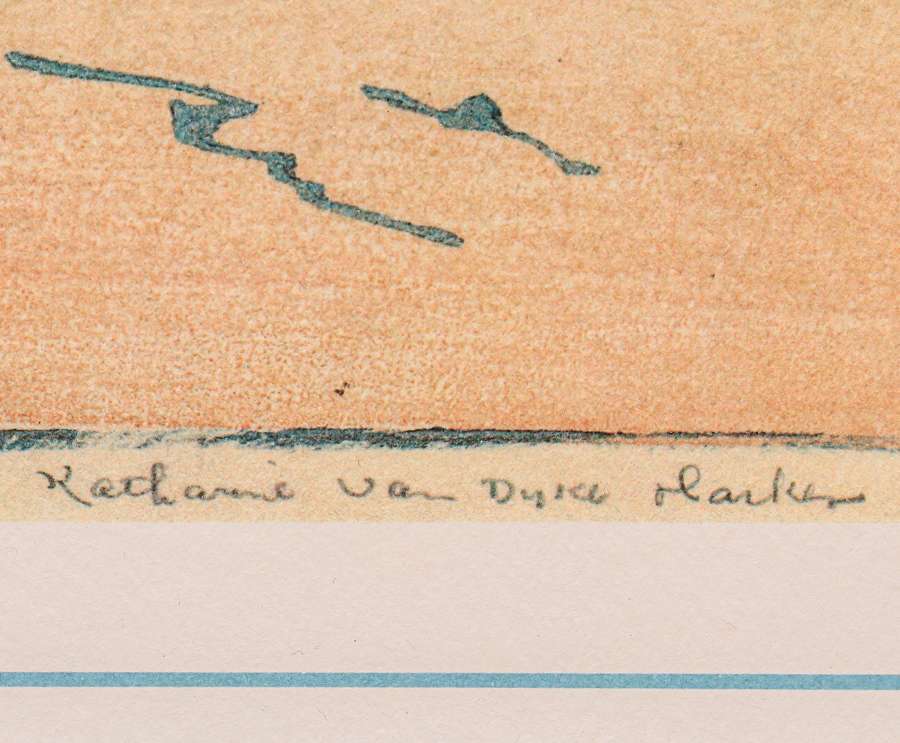 Katharine Van Dyke Harker